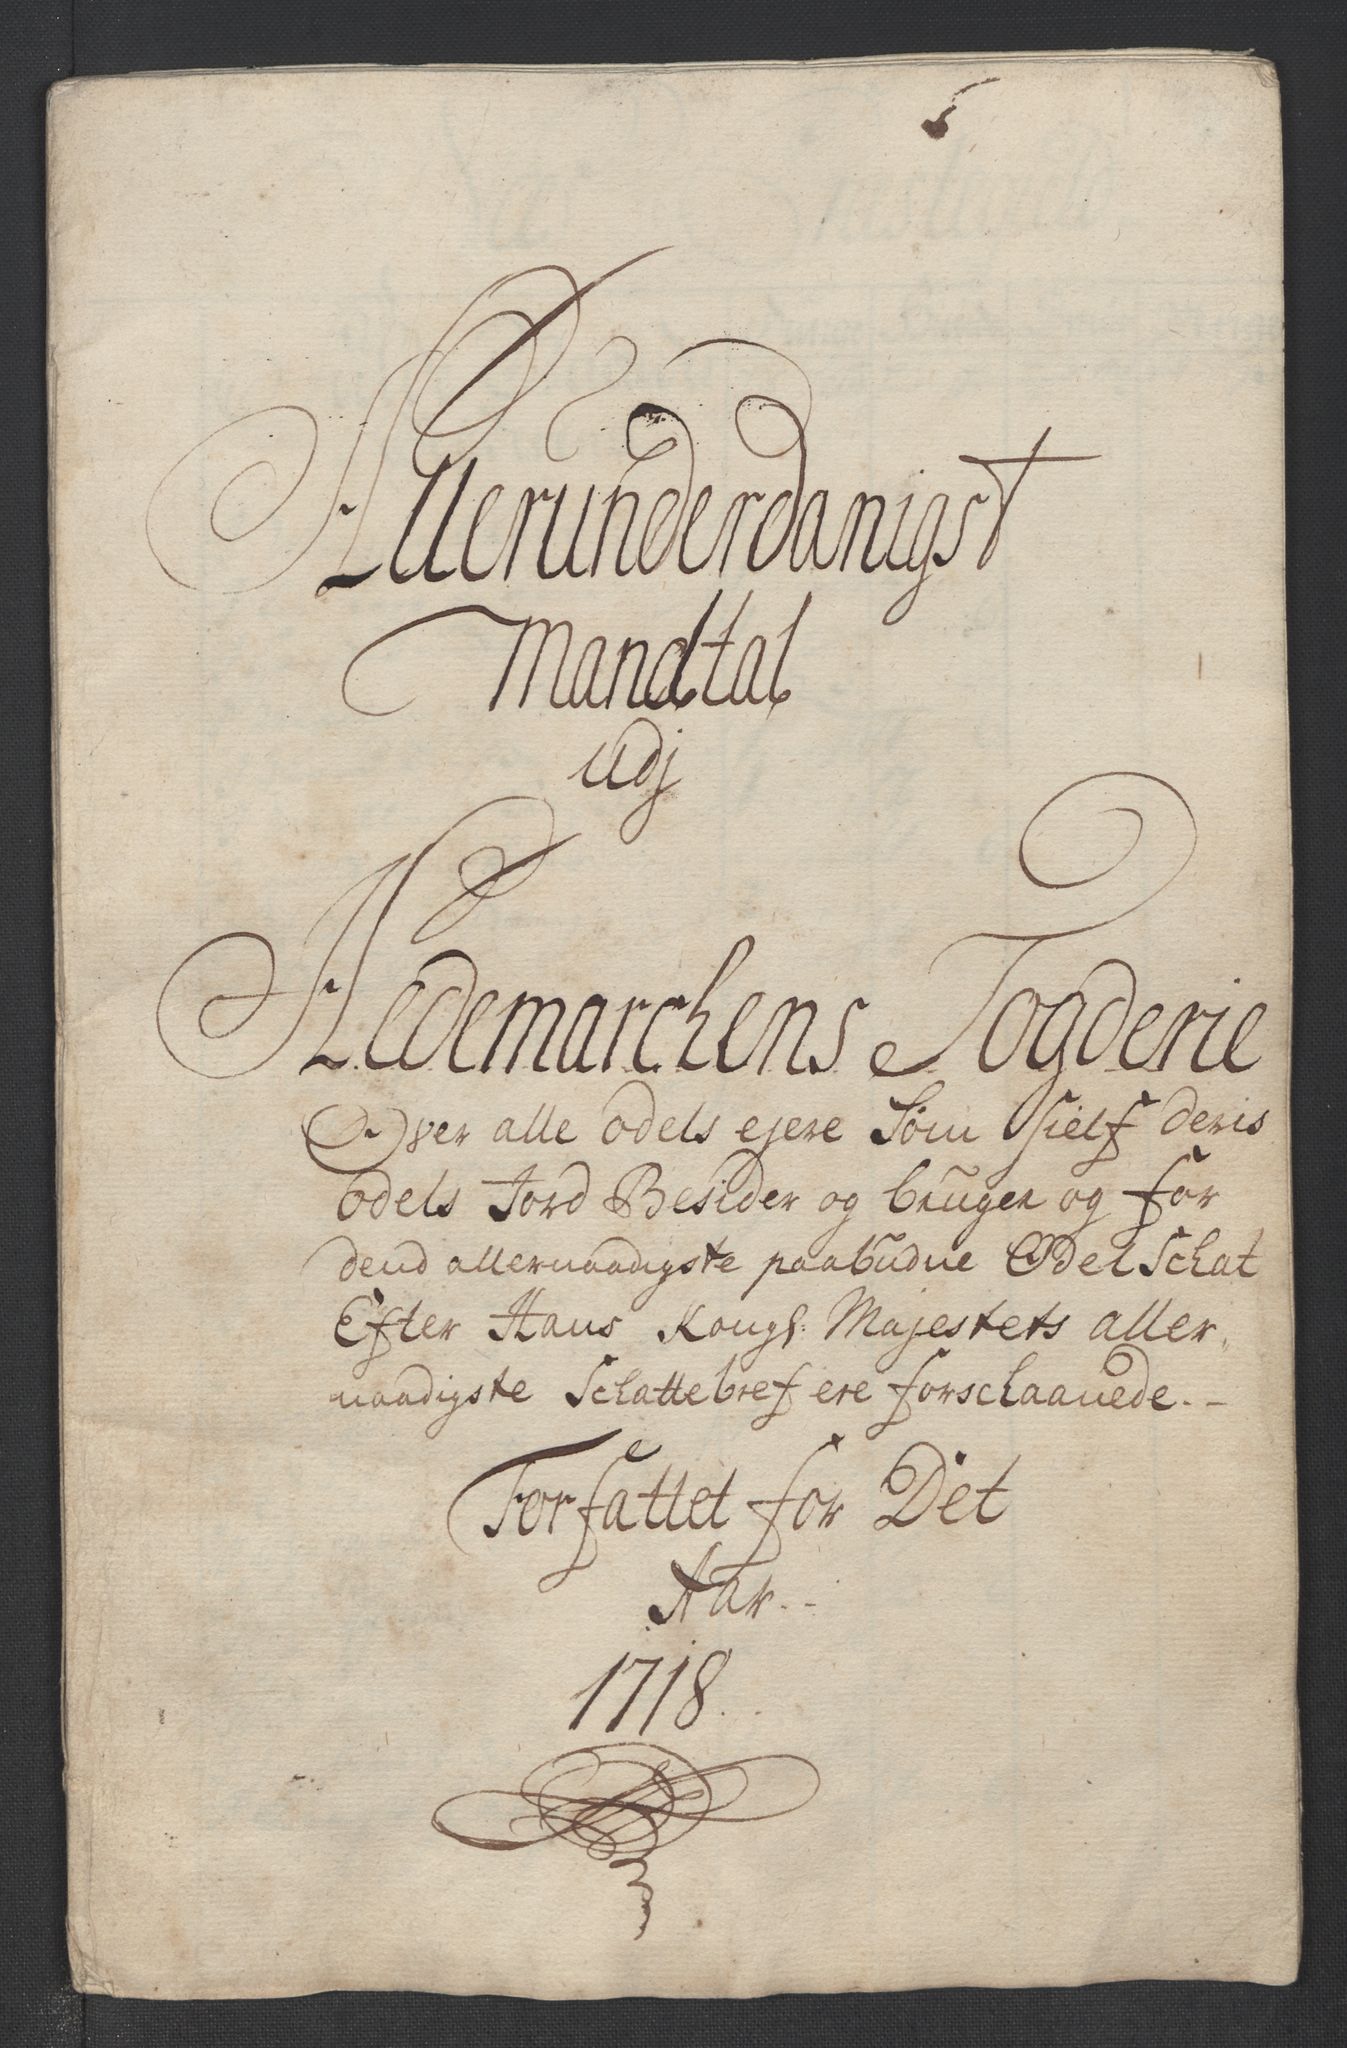 Allerunderdanigst
Mandtal
udj
Hedemarchens Fogderie
Over alle odels ejere Som Sielf deris
odels Jord Besider og bruger og for
dend allernaadigste paabudne Odel Schat
Efter Hans Kongl: Majestets aller,
naadigste Schattebref ere forschaanede.-
Forfattet for Det
Aar.-
1718.